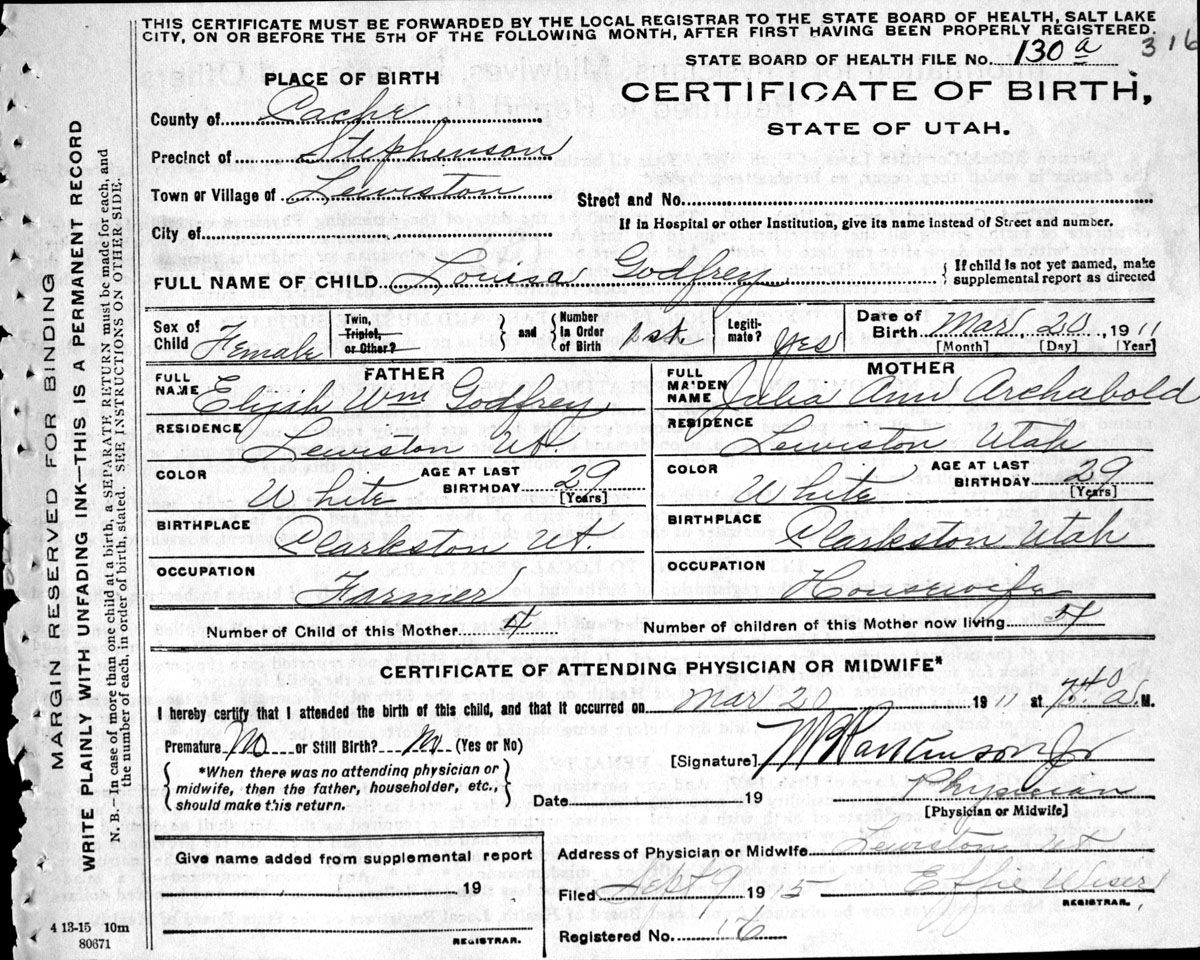 THIS CERTIFICATE MUST BE FORWARDED BY THE LOCAL REGISTRAR TO THE STATE BOARD OF HEALTH, SALT LAKE
CITY, ON OR BEFORE THE 5TH OF THE FOLLOWING MONTH, AFTER FIRST HAVING BEEN PROPERLY REGISTERED.
STATE BOARD OF HEALTH FILE No. 130 a 316
PLACE OF BIRTH
CERTIFICATE OF BIRTH,
STATE OF UTAH.
County of Cache
Precinct of Stephenson
Town or Village of Lewiston
Street and No.
City of
If in Hospital or other Institution, give its name instead of Street and number.
FULL NAME OF CHILD Louisa Godfrey { If child is not yet named, make supplemental report as directed
Sex of Child Female
Twin, Triplet, or Other? } and { Number in Order of Birth 1st
Legiti-mate? Yes
Date of Birth Mar 20, 1911
[Month] [Day] [Year]
FATHER
FULL NAME Elijah Wm Godfrey
RESIDENCE Lewiston Ut.
COLOR White AGE AT LAST BIRTHDAY 29 [Years]
BIRTHPLACE Clarkston Ut.
OCCUPATION Farmer
MOTHER
FULL MAIDEN NAME Julia Ann Archabold
RESIDENCE Lewiston Utah
COLOR White AGE AT LAST BIRTHDAY 29 [Years]
BIRTHPLACE Clarkston Utah
OCCUPATION Housewife
Number of Child of this Mother
Number of children of this Mother now living
CERTIFICATE OF ATTENDING PHYSICIAN OR MIDWIFE*
I hereby certify that I attended the birth of this child, and that it occurred on Mar 20 1911 at 740 a M.
Premature No or Still Birth? No (Yes or No)
[Signature] Parkinson Jr
{ *When there was no attending physician or midwife, then the father, householder, etc., should make this return. }
Date 19 Physician
[Physician or Midwife]
Give name added from supplemental report
, 19
REGISTRAR.
Address of Physician or Midwife Lewiston Ut
Filed Sept 9 1915 Effie Wiser
REGISTRAR.
Registered No. 16
4 13-15 10m
80671
MARGIN RESERVED FOR BINDING
WRITE PLAINLY WITH UNFADING INK—THIS IS A PERMANENT RECORD
N. B.—In case of more than one child at a birth, a SEPARATE RETURN must be made for each, and
the number of each, in order of birth, stated. SEE INSTRUCTIONS ON OTHER SIDE.